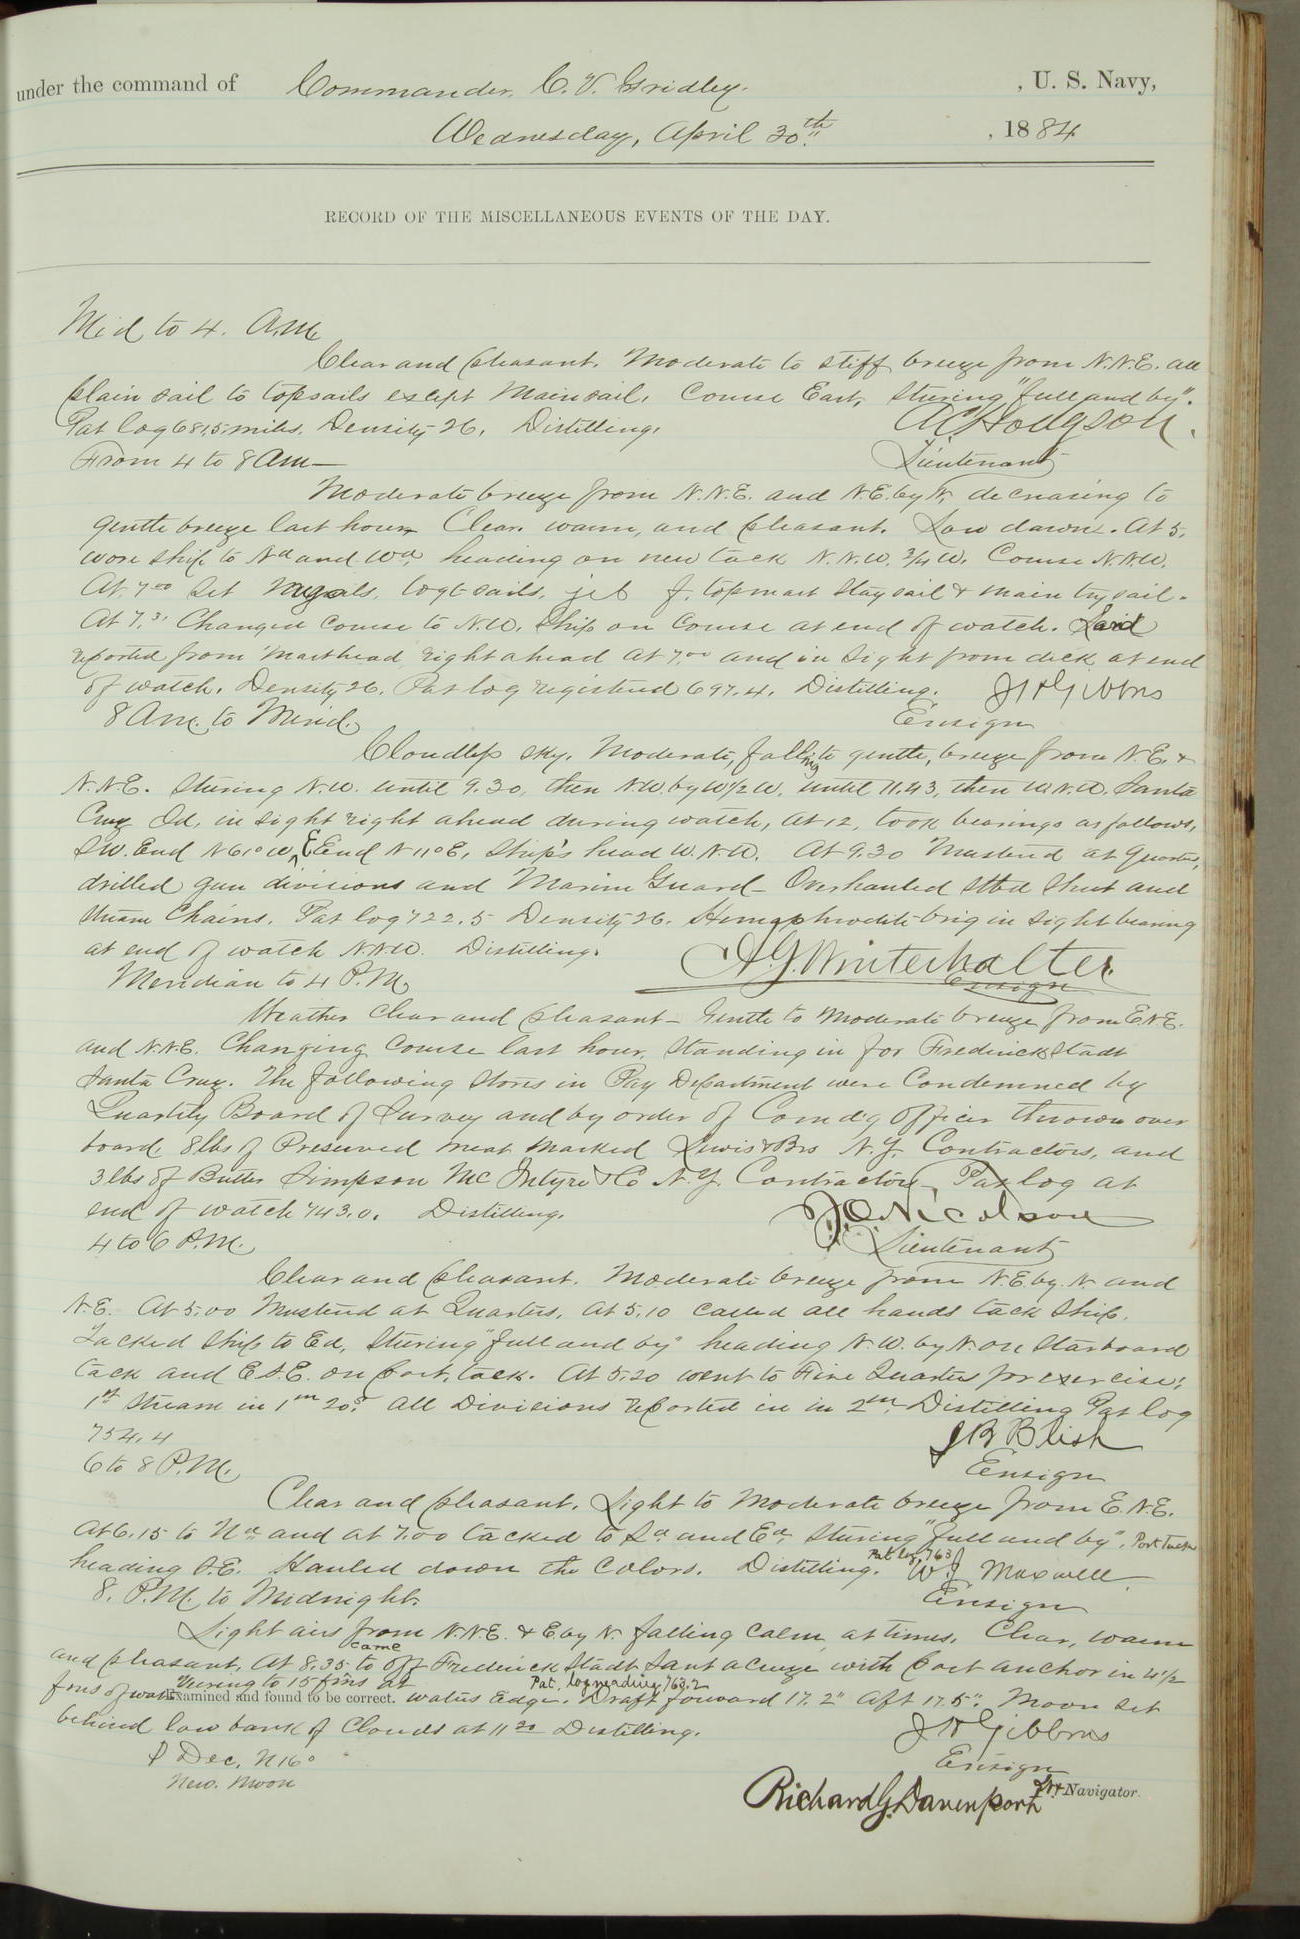 under the command of Commander, C. V. Gridley. , U. S. Navy,
Wednesday, April 30th , 1884
RECORD OF THE MISCELLANEOUS EVENTS OF THE DAY.
Mid to 4. A.M.
Clear and pleasant. Moderate to stiff breeze from N.N.E. all
plain sail to topsails except Mainsail. Course East, Steering "full and by".
Pat log 681.5 miles. Density 26. Distilling.
A C Hodgson.
From 4 to 8 Am—
Lieutenant
Moderate breeze from N.N.E. and N.E. by N. decreasing to
gentle breeze last hour. Clear. warm, and pleasant. Low dawn. At 5.
wore ship to Nd and Wd, heading on new tack N.N.W. 3/4 W. Course N.N.W.
At 7.00 Set royals, togt sails, jib f. topmast Stay sail & main try sail.
At 7.3 Changed Course to N.W. Ship on Course at end of watch. Land
reported from Masthead right ahead at 7.00 and in Sight from deck at end
of watch. Density 26. Pat log registered 697.4. Distilling.
J H Gibbons
8 Am. to Merid.
Ensign
Cloudless sky. Moderate, falling to gentle, breeze from N.E. &
N.N.E. Steering N.W. until 9.30, then N.W. by W 1/2 W. until 11.43, then W.N.W. Santa
Cruz Id. in sight right ahead during watch, at 12, took bearings as follows,
S.W. End N 61° W, E End N 11° E, Ship's head W.N.W. At 9.30 Mustered at Quarters,
drilled gun divisions and Marine Guard— Overhauled Stbd Sheet and
Stream Chains. Pat log 722.5 Density 26. Hermaphrodite brig in sight bearing
at end of watch N.N.W. Distilling.
A. G. Winterhalter.
Meridian to 4 P.M.
Ensign
Weather Clear and pleasant— Gentle to Moderate breeze from E.N.E.
and N.N.E. Changing Course last hour, Standing in for Frederick Stadt
Santa Cruz. The following Stores in Pay Department were Condemned by
Quartily Board of Survey and by order of Com'd'g Officer thrown over
board, 8 lbs of Preserved meat Marked Lewis & Bros N.Y. Contractors, and
3 lbs of Butter Simpson Mc Intyre & Co N.Y. Contractors, Pat log at
end of watch 743.0. Distilling.
J. O. Nicolson
4 to 6 P.M.
Lieutenant
Clear and pleasant. Moderate breeze from N.E. by N and
N.E. At 5.00 Mustered at Quarters, at 5.10 Called all hands tack Ship.
Tacked Ship to Ed, Steering "full and by" heading N.W. by N. on Starboard
tack and E.S.E. on port, tack. At 5.20 went to Fire Quarters for exercise;
1st Stream in 1m 20s. All Divisions reported in in 2m, Distilling Pat log
754.4
J B Blish
6 to 8 P.M.
Ensign
Clear and pleasant. Light to Moderate breeze from E.N.E.
At 6.15 to Nd and at 7.00 tacked to Sd and Ed, Steering "full and by". Port Tack
heading S.E. Hauled down the Colors. Distilling. Pat log, 763
W. J Maxwell
8. P.M. to Midnight.
Ensign
Light airs from N.N.E. & E. by N. falling Calm, at times. Clear, warm
and pleasant. At 8.35 came to off Frederick Stadt Santa Cruz with port anchor in 4 1/2
fms of water Veering to 15 fms at waters edge. Pat. log reading 763.2 Draft forward 17.2" Aft 17.5". Moon Set
Examined and found to be correct.
behind low bank of Clouds at 11 20 Distilling.
J H Gibbons
Dec. N 16°
Ensign
New. Moon
Richard G. Davenport Navigator.